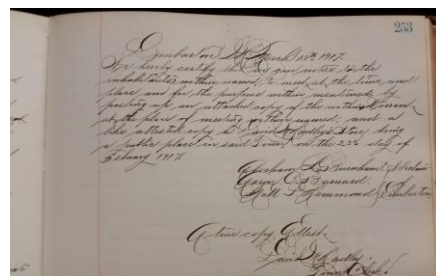 253
March 13th 1917.
We hereby certify that we gave notice to the
inhabitants within named, to meet at the time and
place and for the purpose within mentioned, by
posting up an attested copy of the within Warrant
at the place of meeting within named, and a
like attested copy at Store being
a public place in said Town on the 22d day of
1917.
Selectmen
of
A true copy Attest
Town Clerk